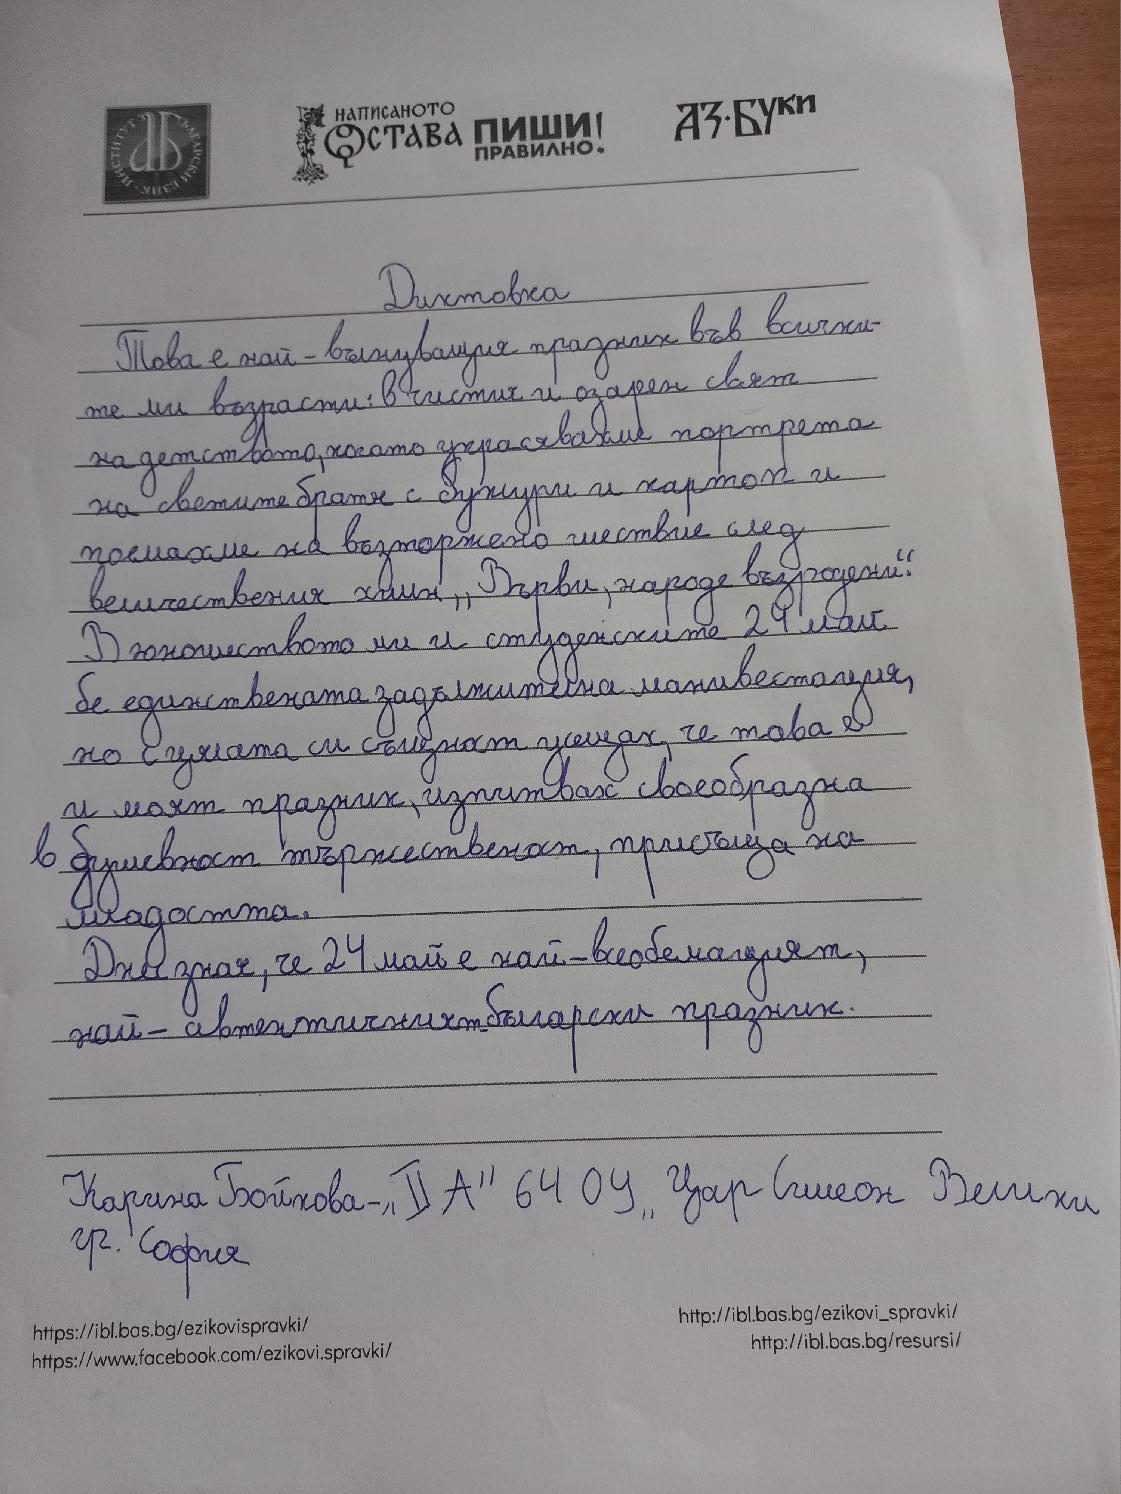 ИНСТИТУТ ЗА БЪЛГАРСКИ ЕЗИК
НАПИСАНОТО
ОСТАВА
ПИШИ!
ПРАВИЛНО.
АЗ·БУКИ
Диктовка
Това е най-вълнуващия празник във всички-
те ми възрасти: в чистия и озарен свят
на детството, когато украсявахме портрета
на светите братя с божури и картон и
поемахме на възторжено шествие след
величествения химн „Върви, народе възродени".
В юношеството ми и студенските 24 май
бе единствената задължителна манивестация,
но с цялата си същност усещах, че това е
и моят празник, изпитвах своеобразна
в душевност тържественост, присъща на
младостта.
Днес зная, че 24 май е най-всеобемащият,
най-автентичният български празник.
Карина Бойкова-„II А" 64 ОУ „Цар Симеон Велики
гр. София
https://ibl.bas.bg/ezikovispravki/
https://www.facebook.com/ezikovi.spravki/
http://ibl.bas.bg/ezikovi_spravki/
http://ibl.bas.bg/resursi/